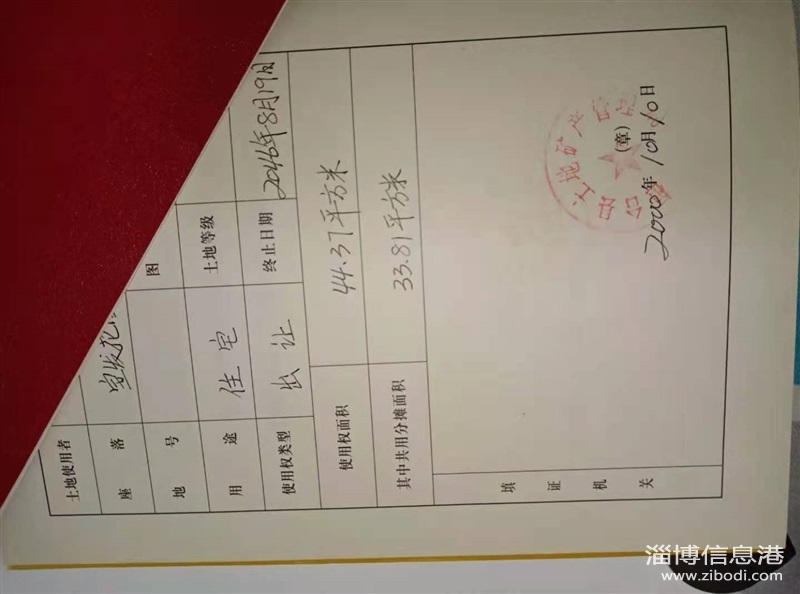 土地使用者
座落
地号 图
用途 住宅 土地等级
使用权类型 出让 终止日期 2046年8月19日
使用权面积 44.37平方米
其中共用分摊面积 33.81平方米
填证机关
(章)
2000年10月10日
淄博信息港
www.zibodi.com